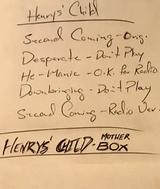 Henrys' Child
Second Coming - Orig.
Desperate - Don't Play
He-Manic - O.K. for Radio
Downbringing - Don't Play
Second Coming - Radio Ver.
HENRYS' CHILD - MOTHER BOX